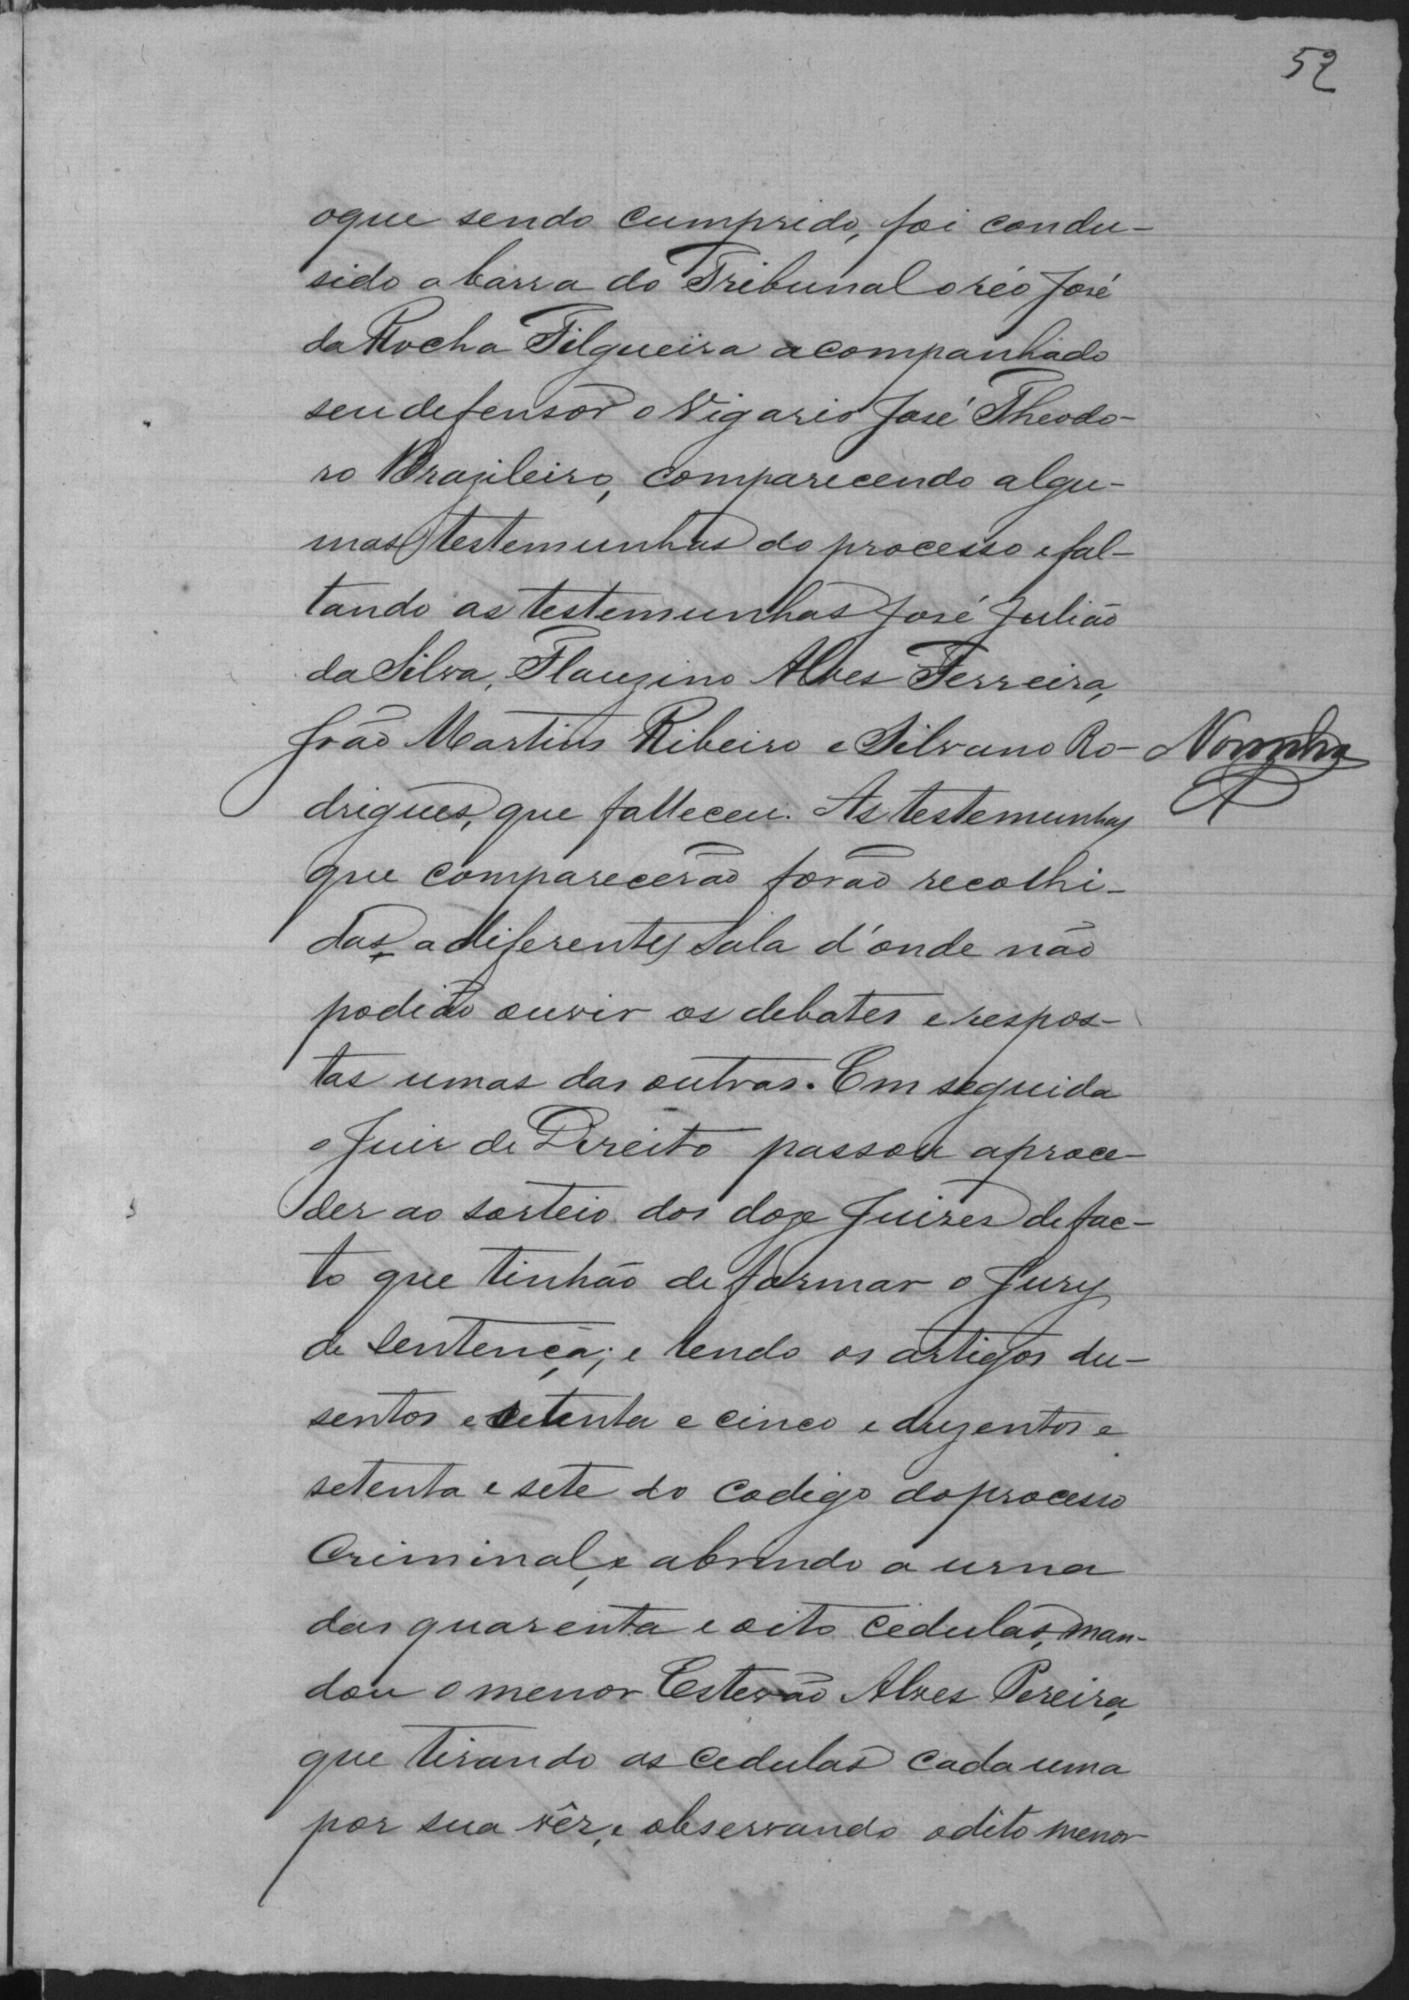 52
oque sendo cumprido, foi condu-
sido a barra do Tribunal o réo José
da Rocha Filgueira acompanhado
seu defensor o Vigario José Theodo-
ro Brazileiro, comparecendo algu-
mas testemunhas do processo e fal-
tando as testemunhas José Julião
da Silva, Flauzino Alves Ferreira,
João Martins Ribeiro e Silvano Ro-
drigues, que falleceu. As testemunhas
que comparecerão forão recolhi-
das a diferentes sala d'onde não
podião ouvir os debates e respos-
tas umas das outras. Em seguida
o Juir de Direito passou aproce-
der ao sorteio dos doze Juizes defac-
to que tinhão de formar o Jury
de sentença; e lendo os artigos du-
sentos e setenta e cinco e duzentos e
setenta e sete do codigo doprocesso
Criminal, e abrindo a urna
das quarenta e oito cedulas, man-
dou o menor Estevão Alves Pereira,
que tirando as cedulas cada uma
por sua vêr, e observando odito menor